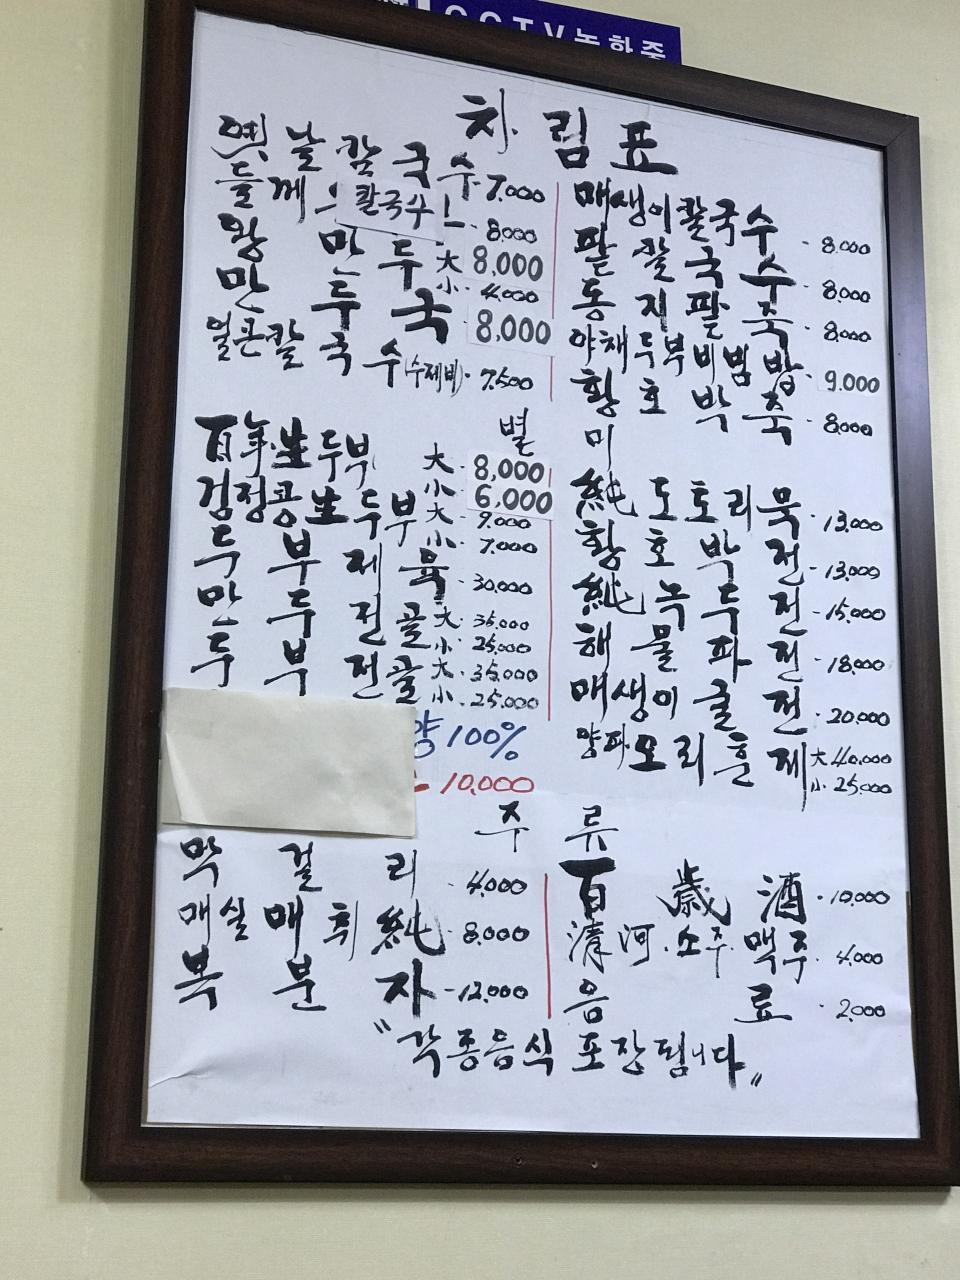 CCTV녹화중
차림표
옛날칼국수 7,000
들깨 칼국수 8,000
왕만두 大 8,000
小 4,000
만두국 8,000
얼큰칼국수(수제비) 7,500
매생이칼국수 8,000
팥칼국수 8,000
동지팥죽 8,000
야채두부비빔밥 9,000
황호박죽 8,000
별미
百年生두부 大 8,000
小 6,000
검정콩生두부 大 9,000
小 7,000
두부제육 30,000
만두전골 大 35,000
小 25,000
두부전골 大 35,000
小 25,000
100%
10,000
純도토리묵 13,000
황호박전 13,000
純녹두전 15,000
해물파전 18,000
매생이굴전 20,000
양파오리훈제 大 40,000
小 25,000
주류
막걸리 4,000
매실매취純 8,000
복분자 12,000
百歲酒 10,000
淸河.소주 맥주 4,000
음료 2,000
"각종음식 포장됩니다"